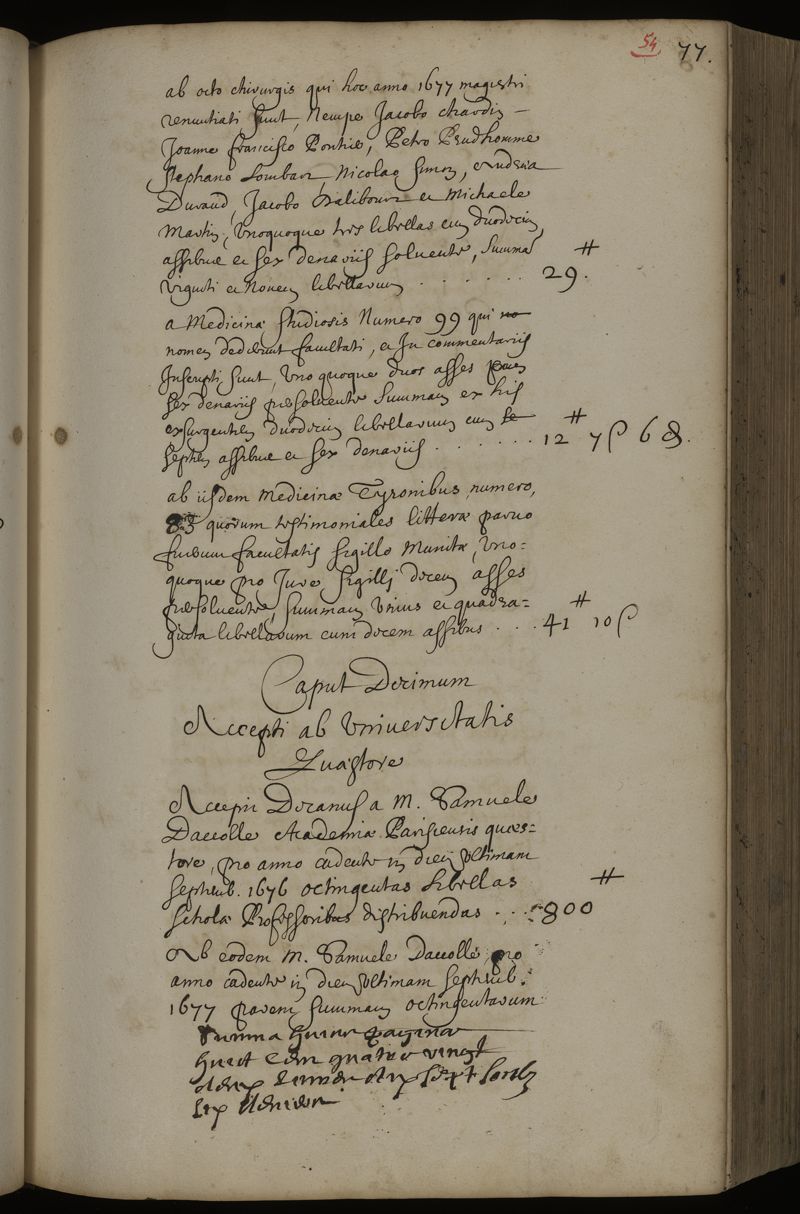 54 77.
ab octo chirurgis qui hoc anno 1677 magistri
renuntiati sunt, Nempe Jacobo chardin –
Joanne francisco Ponthie, Petro Prudhomme
Stephano Lombard, Nicolao Simon, Andrea
Durand, Jacobo et Michaele
Martin, Unoquoque tres libellas cum duodecim
assibus et sex denariis soluente, Summa
viginti et Novem libellarum . . . . . . . 29. #
a Medicinæ Studiosis Numero 99 qui no
nomen dederunt facultati, et In commentariis
Inscripti sunt, Uno quoque duos asses
sex denariis persoluente Summam ex his
exsurgentem duodecim libellarum cum se
septem assibus et sex denariis . . . . . . . 12 # 7 s 6 d.
ab iisdem Medicinæ Tyronibus numero,
83 quorum testimoniales litteræ paruo
fuerunt facultatis sigillo Munitæ, Uno=
quoque pro Jure Sigilli decem asses
persoluente, summam Unius et quadra=
ginta libellarum cum decem assibus . . . 41 # 10 s
Caput Decimum
Accepti ab Universitatis
Quæstore
Accepi Decanus a M. Samuele
Dacolle Academiæ Parisiensis quæs=
tore, pro anno cadente in diem ultimam
septemb. 1676 octingentas libellas
scholæ Professoribus distribuendas . . . 800 #
Ab eodem M. Samuele Dacolle pro
anno cadente in diem ultimam septemb.
1677 parem summam octingentarum
Summa huius paginæ
huict cens quatre vingt
deux livres dix sept solz
six deniers